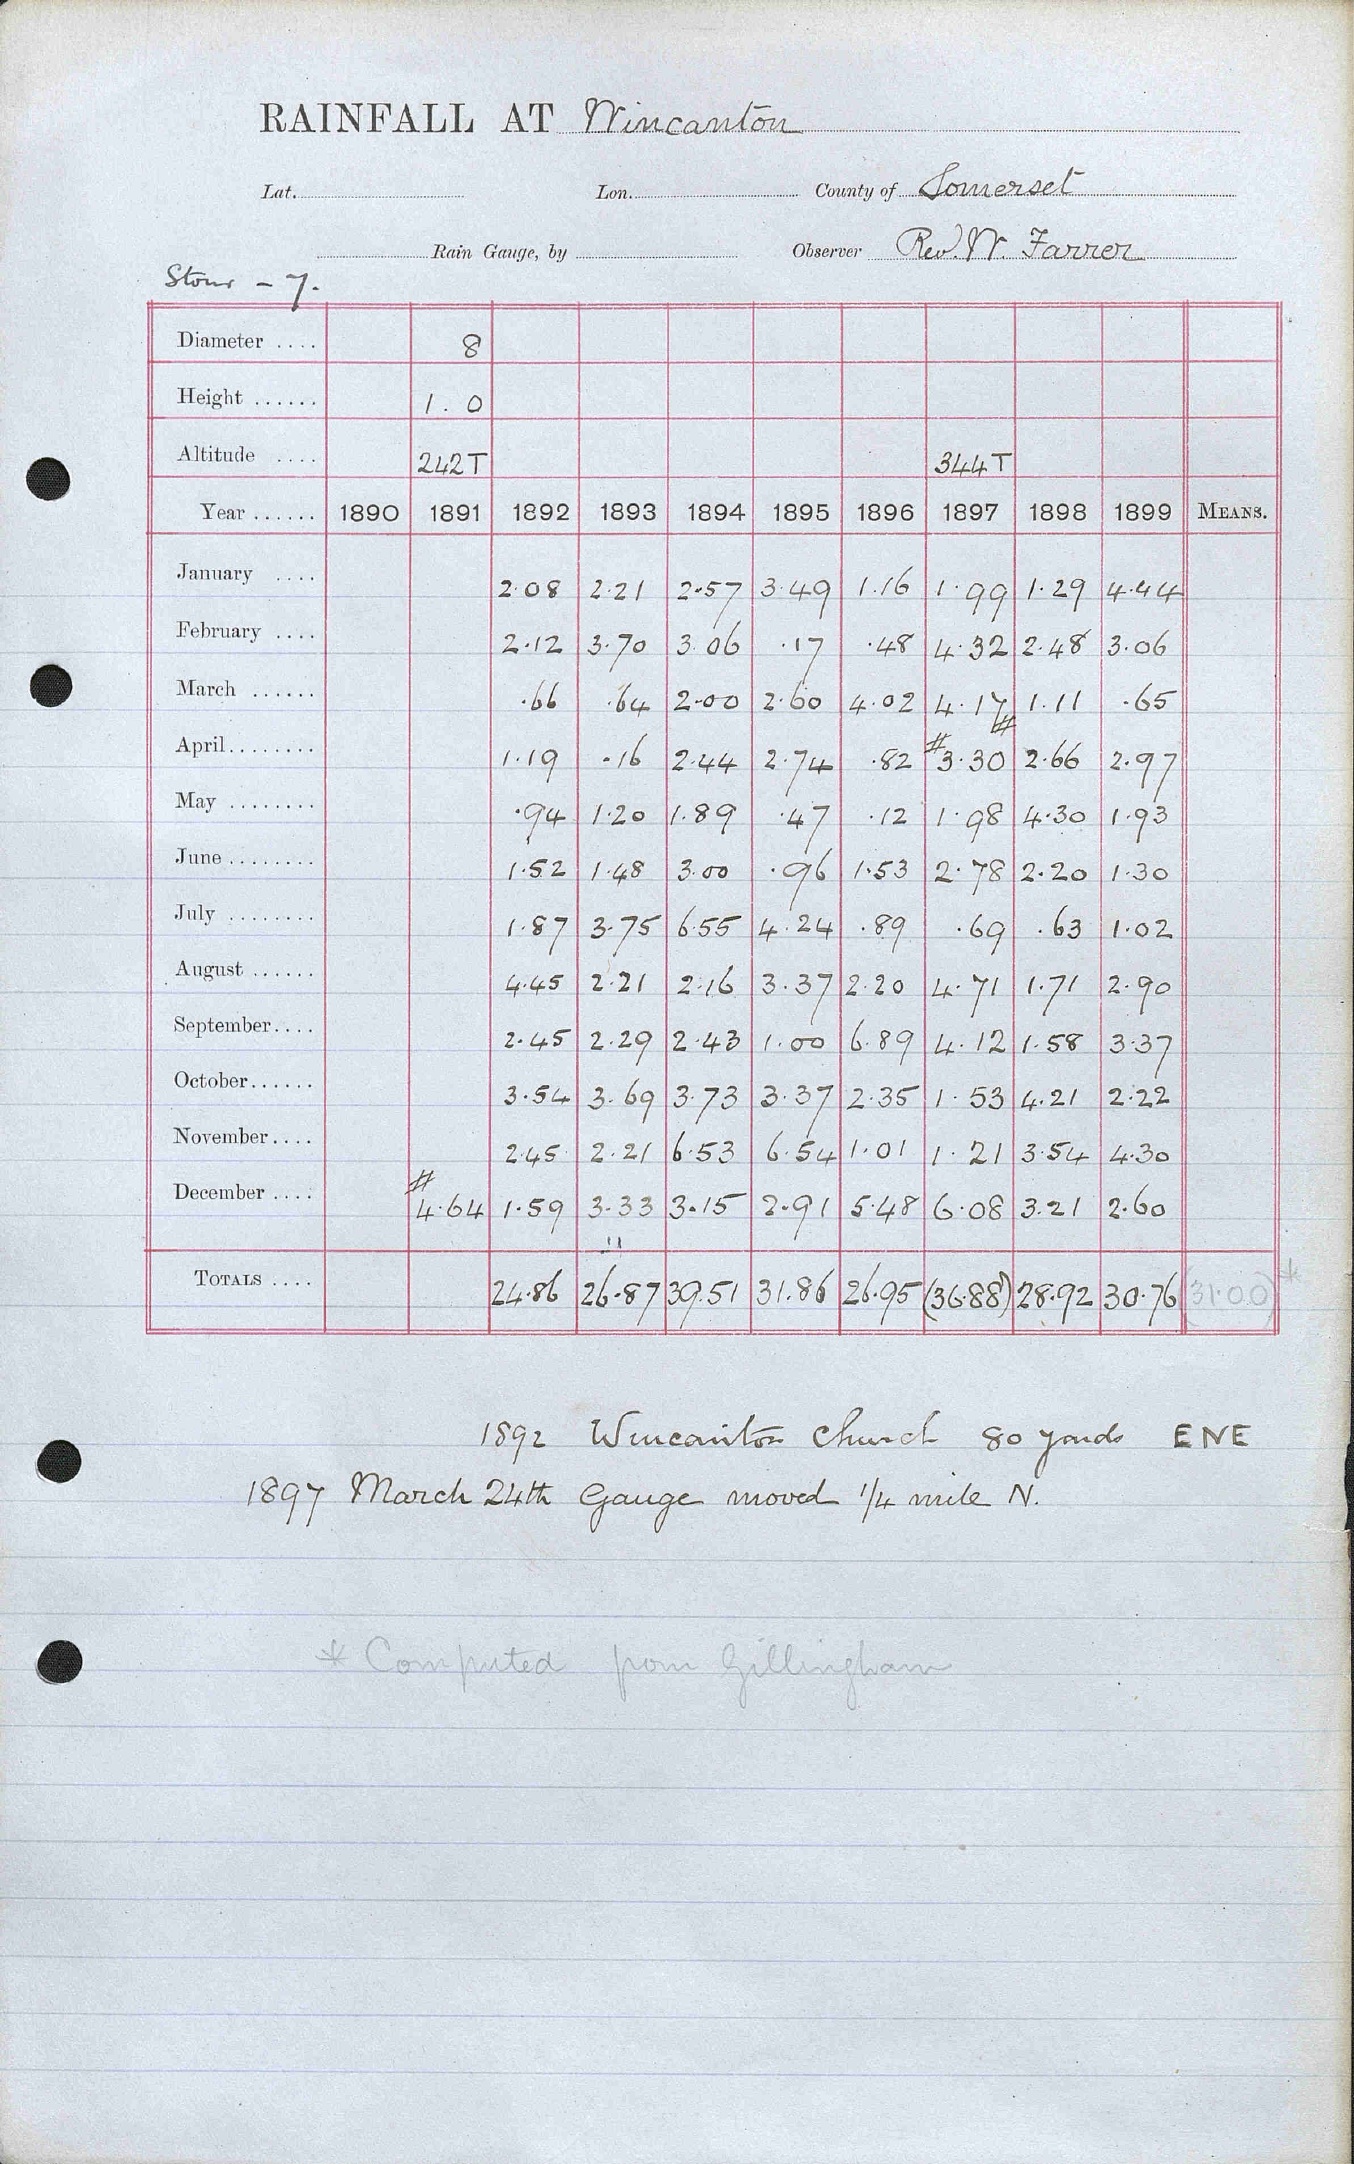 RAINFALL AT Wincanton
Lat. Lon. County of Somerset
Rain Gauge, by Observer Rev. W. Farrer
Stour - 7.
Diameter .... 8
Height ...... 1.0
Altitude .... 242T 344T
Year ...... 1890 1891 1892 1893 1894 1895 1896 1897 1898 1899 MEANS.
January .... 2.08 2.21 2.57 3.49 1.16 1.99 1.29 4.44
February .... 2.12 3.70 3.06 .17 .48 4.32 2.48 3.06
March ...... .66 .64 2.00 2.60 4.02 4.17 1.11 .65
April........ 1.19 .16 2.44 2.74 .82 #3.30# 2.66 2.97
May ........ .94 1.20 1.89 .47 .12 1.98 4.30 1.93
June ........ 1.52 1.48 3.00 .96 1.53 2.78 2.20 1.30
July ........ 1.87 3.75 6.55 4.24 .89 .69 .63 1.02
August ...... 4.45 2.21 2.16 3.37 2.20 4.71 1.71 2.90
September.... 2.45 2.29 2.43 1.00 6.89 4.12 1.58 3.37
October...... 3.54 3.69 3.73 3.37 2.35 1.53 4.21 2.22
November.... 2.45 2.21 6.53 6.54 1.01 1.21 3.54 4.30
December .... #4.64 1.59 3.33 3.15 2.91 5.48 6.08 3.21 2.60
TOTALS .... 24.86 26.87 39.51 31.86 26.95 (36.88) 28.92 30.76 (31.00)*
1892 Wincanton Church 80 yards ENE
1897 March 24th Gauge moved 1/4 mile N.
* Computed from Gillingham